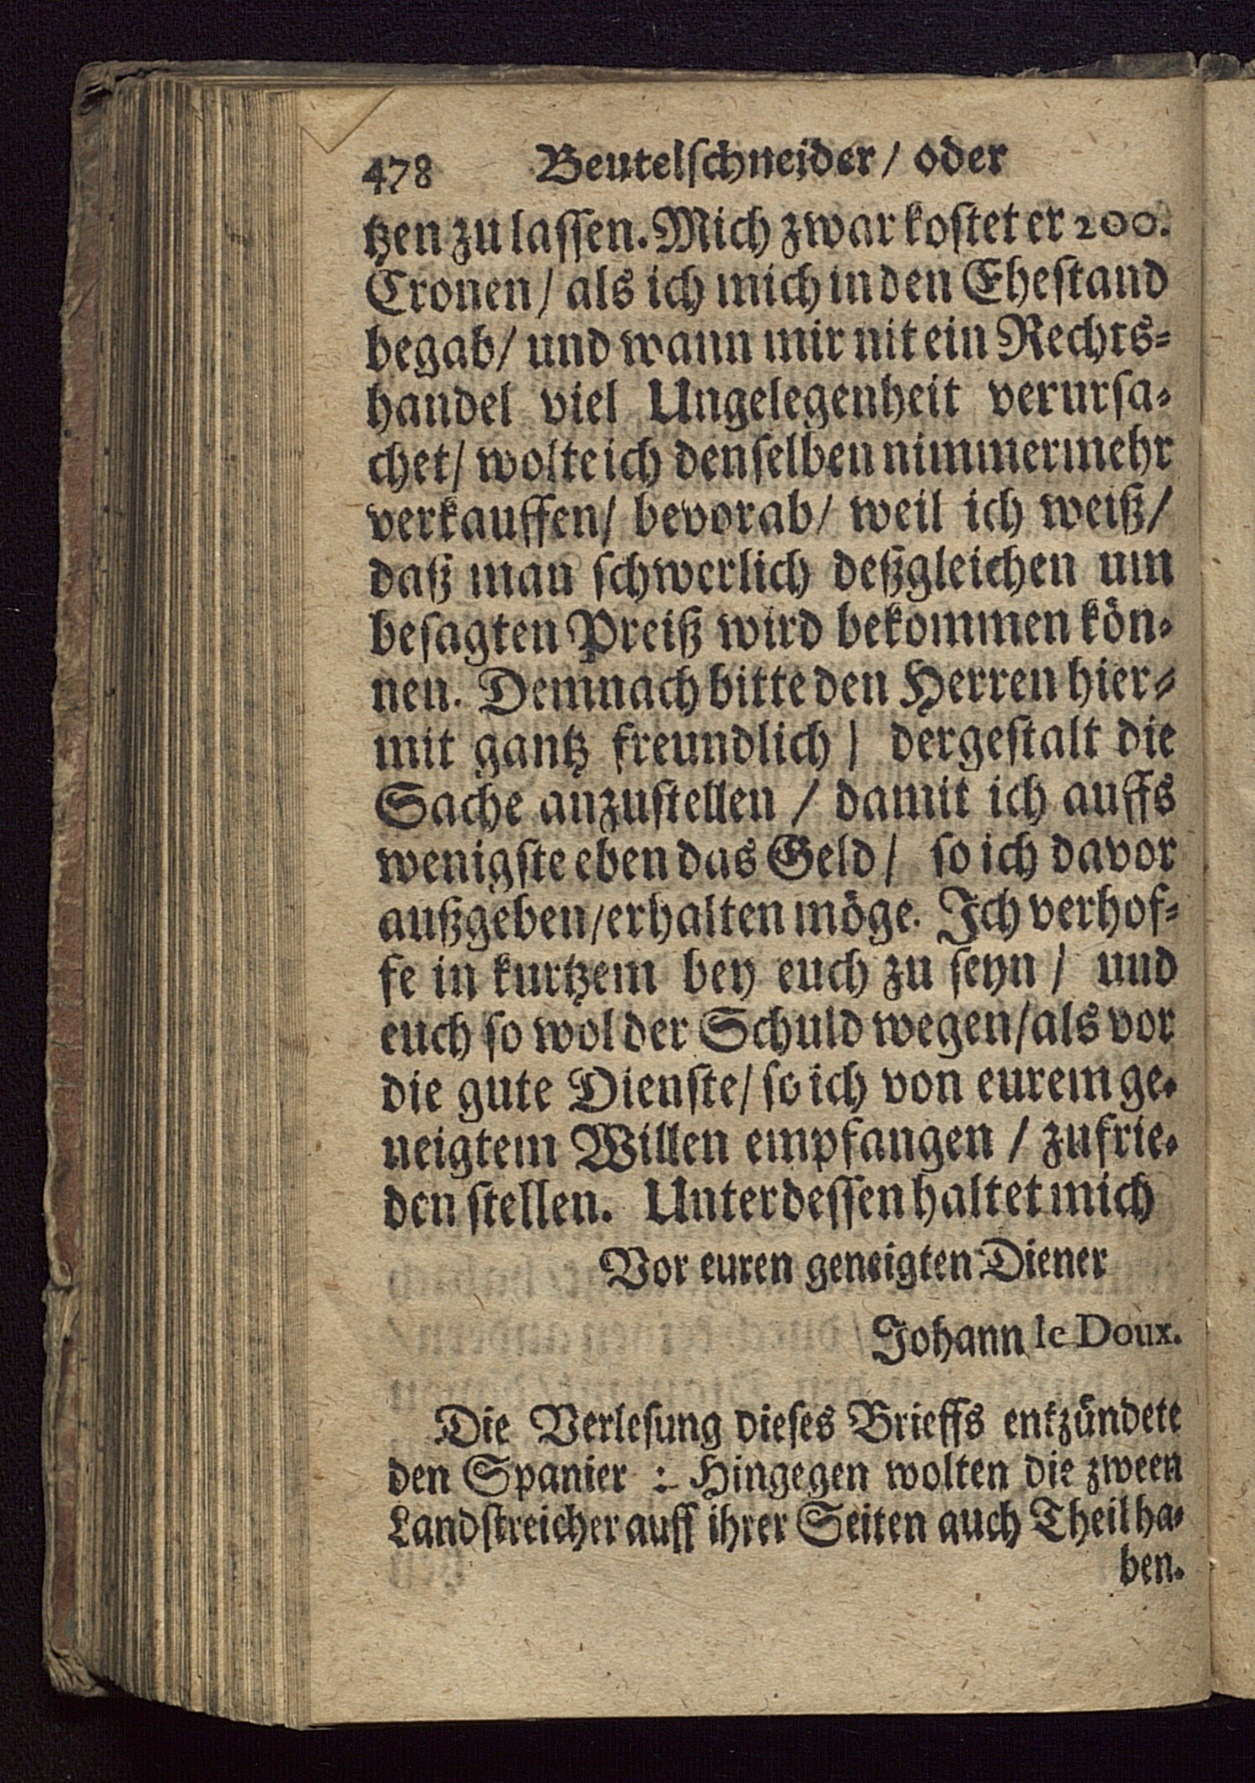 478 Beutelschneider / oder
tzen zu lassen. Mich zwar kostet er 200.
Cronen / als ich mich in den Ehestand
begab / und wann mir nit ein Rechts-
handel viel Ungelegenheit verursa-
chet / wolte ich denselben nimmermehr
verkauffen / bevorab / weil ich weiß /
daß man schwerlich deßgleichen um
besagten Preiß wird bekommen kön-
nen. Demnach bitte den Herren hier-
mit gantz freundlich / dergestalt die
Sache anzustellen / damit ich auffs
wenigste eben das Geld / so ich davor
außgeben / erhalten möge. Ich verhof-
fe in kurtzem bey euch zu seyn / und
euch so wol der Schuld wegen / als vor
die gute Dienste / so ich von eurem ge-
neigtem Willen empfangen / zufrie-
den stellen. Unterdessen haltet mich
Vor euren geneigten Diener
Johann le Doux.
Die Verlesung dieses Brieffs entzündete
den Spanier : Hingegen wolten die zween
Landstreicher auff ihrer Seiten auch Theil ha-
ben.